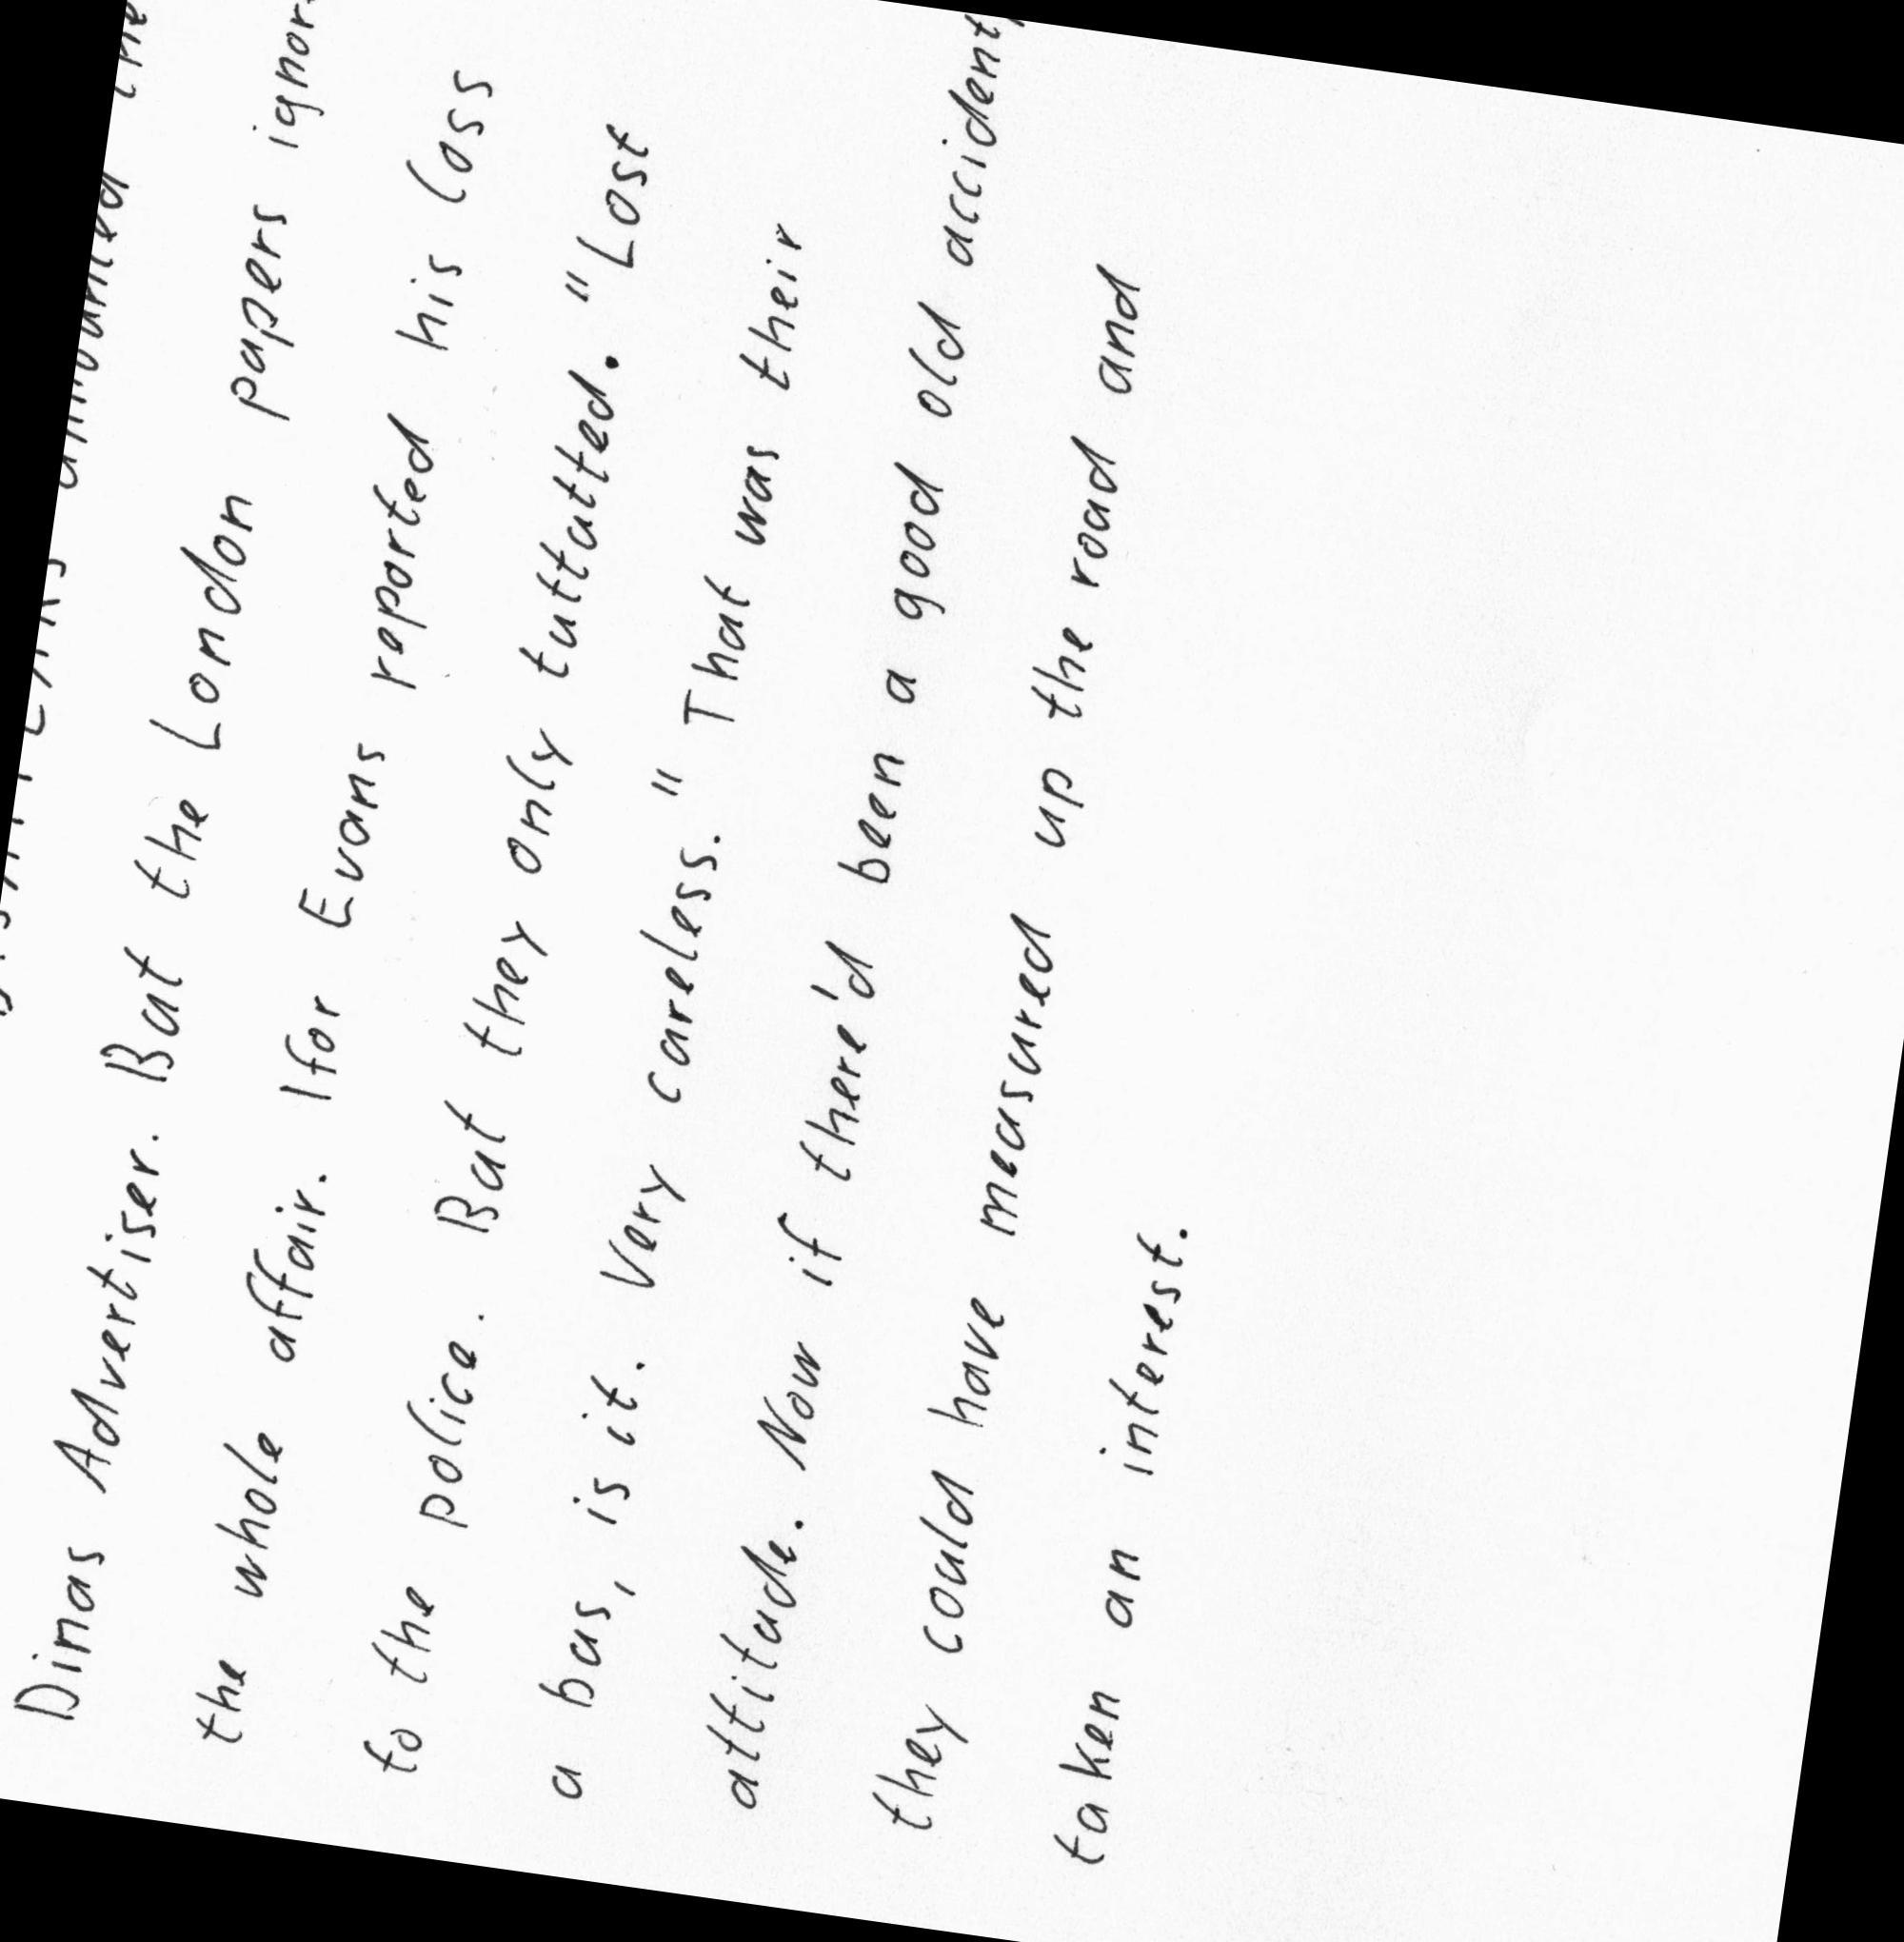 announced the
Dinas Advertiser. But the London papers ignor
the whole affair. Ifor Evans reported his loss
to the police. But they only tuttutted. "Lost
a bus, is it. Very careless." That was their
attitude. Now if there'd been a good old accident,
they could have measured up the road and
taken an interest.